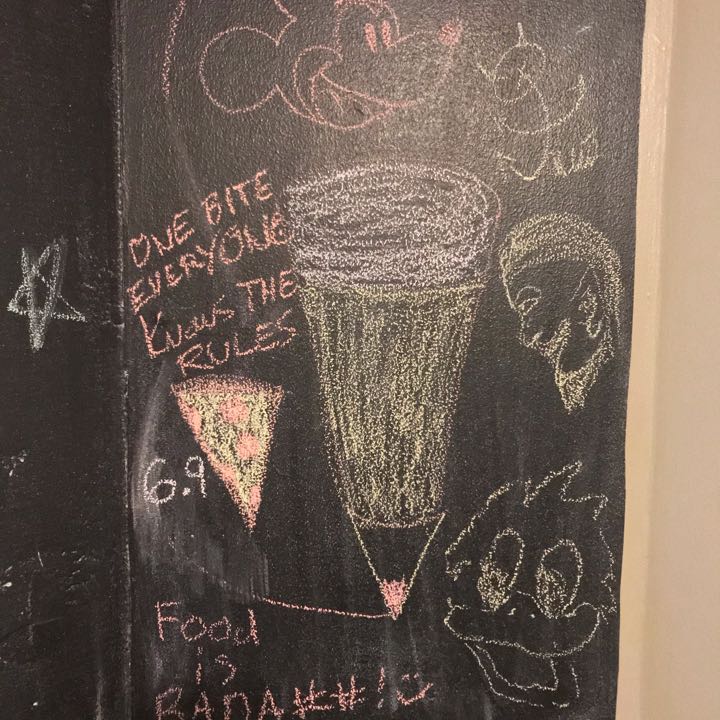 ONE BITE
EVERYONE
KNOWS THE
RULES
6.9
Food
is
BADA##!